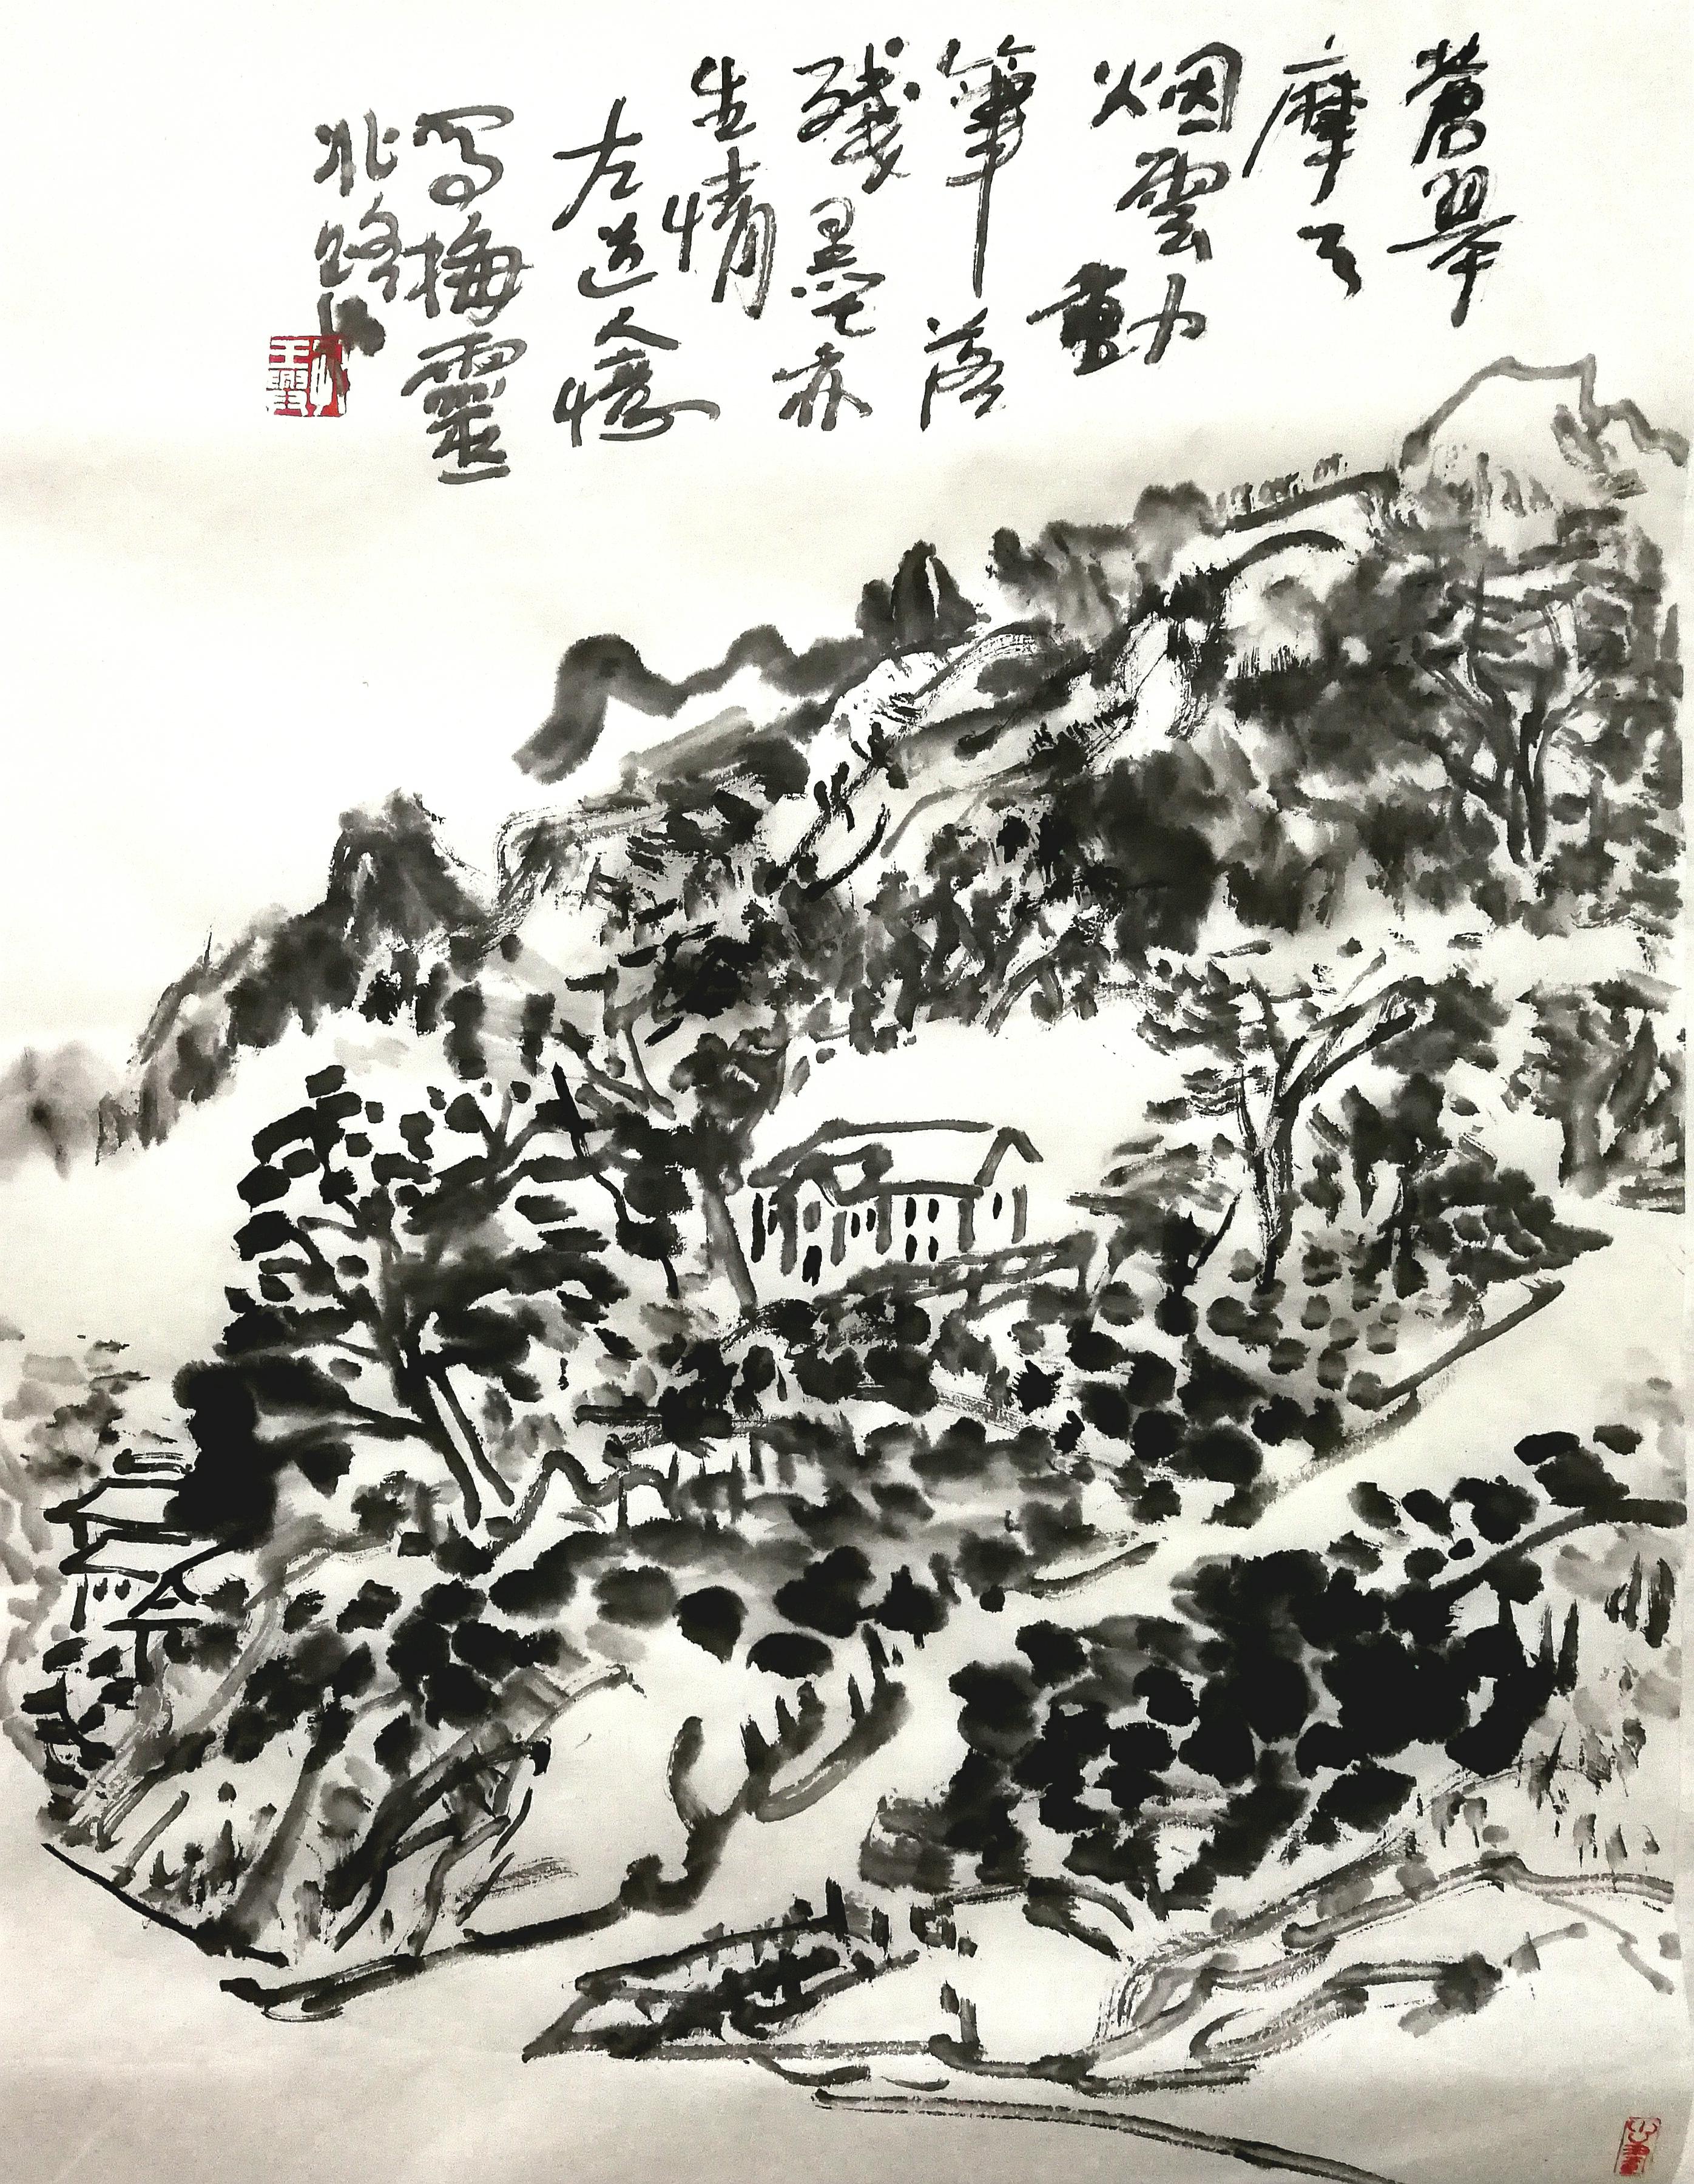 蒼翠
摩天
烟雲動
筆落
殘墨亦
生情
左道人憶
寫梅靈
北路